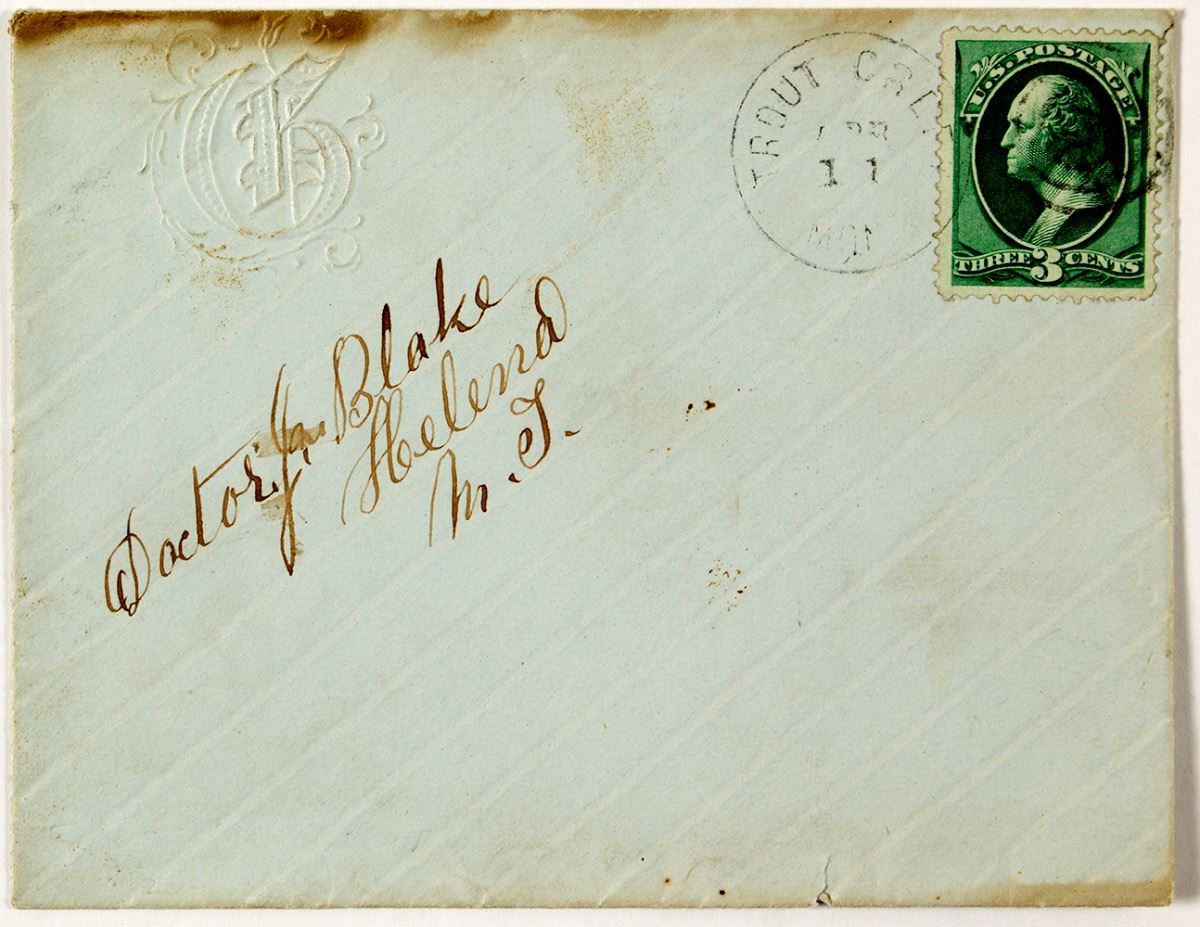 TROUT CRE
APR
11
MON
U.S. POSTAGE
THREE 3 CENTS
Doctor J. Blake
Helena
M. T.